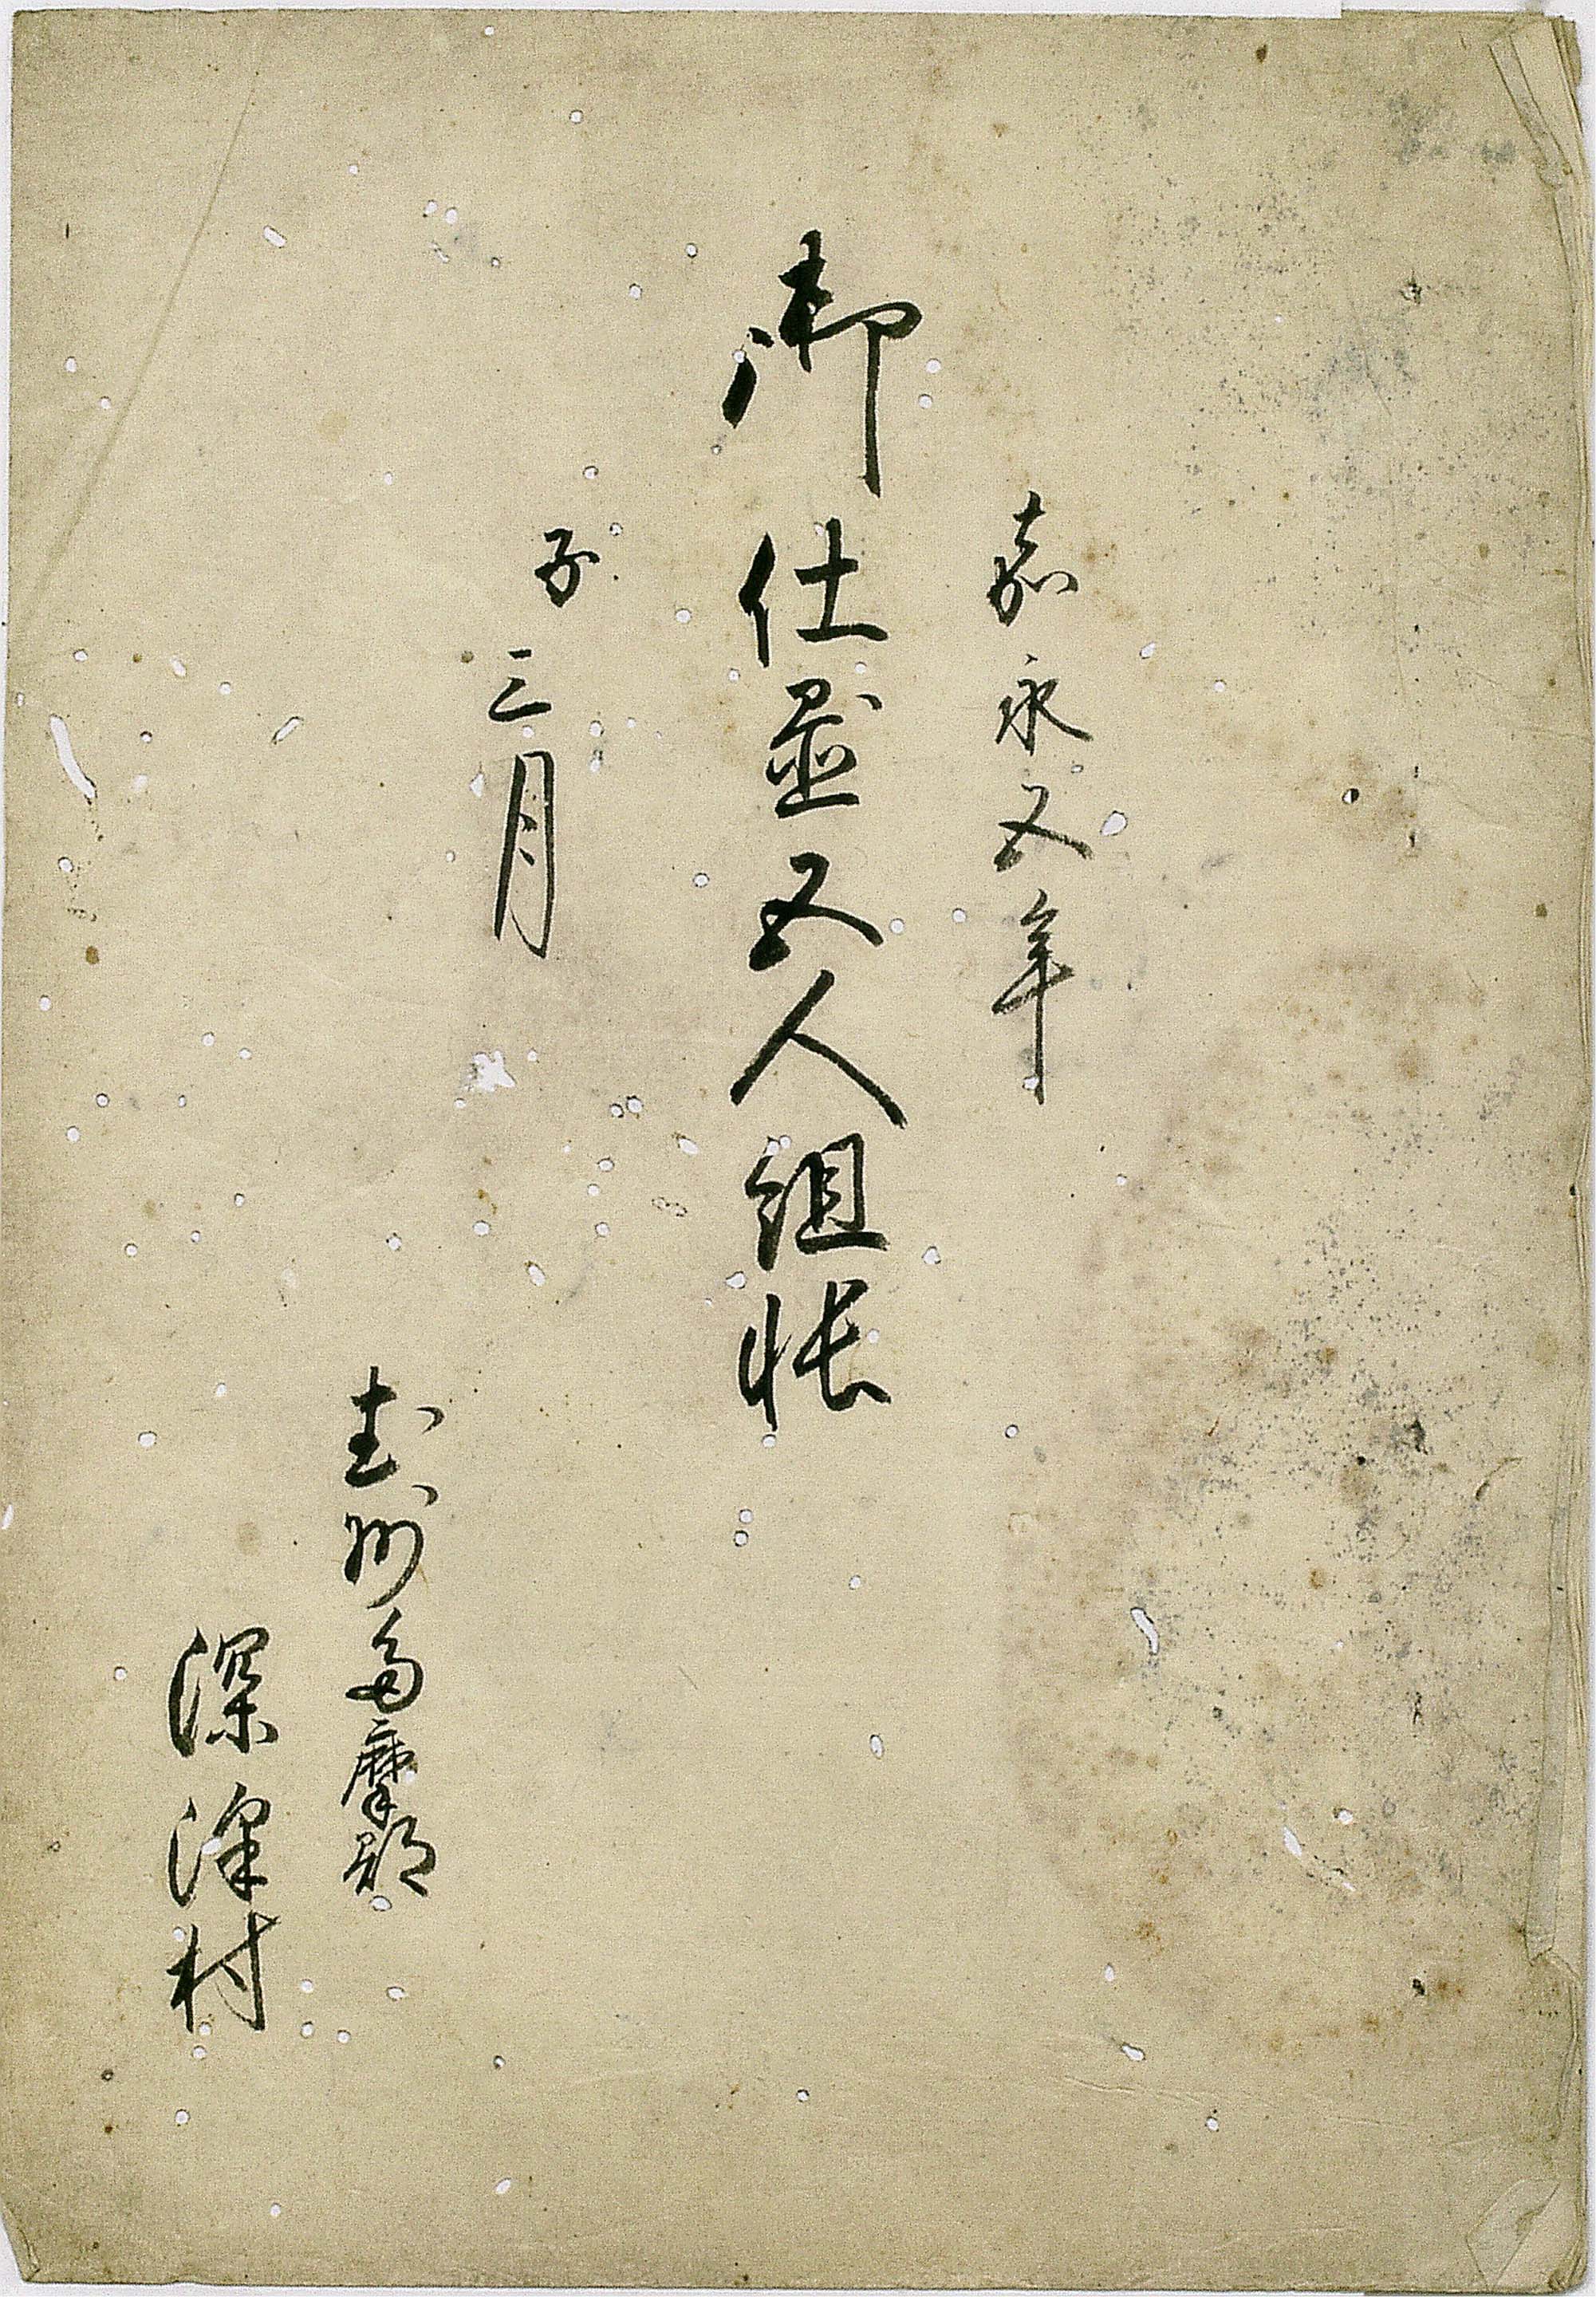 嘉永五年
御仕置五人組帳
子三月
武州多摩郡
深澤村